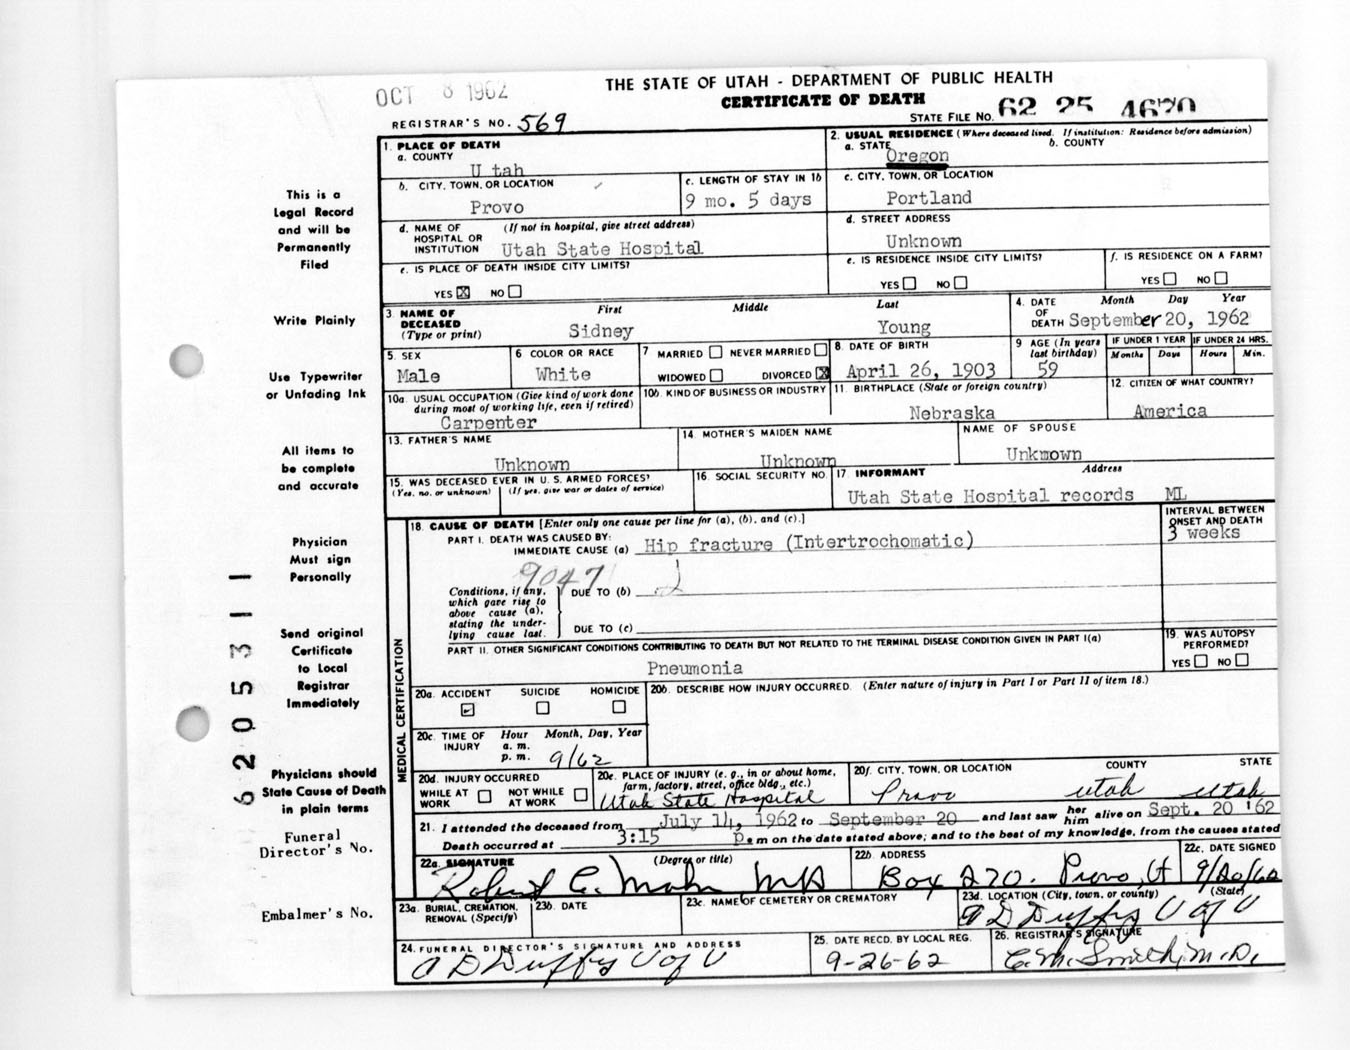 THE STATE OF UTAH - DEPARTMENT OF PUBLIC HEALTH
OCT 8 1962
CERTIFICATE OF DEATH
STATE FILE NO. 62 25 4670
REGISTRAR'S NO. 569
1. PLACE OF DEATH
a. COUNTY
Utah
2. USUAL RESIDENCE (Where deceased lived. If institution: Residence before admission)
a. STATE
b. COUNTY
Oregon
b. CITY, TOWN, OR LOCATION
Provo
c. LENGTH OF STAY IN 1b
9 mo. 5 days
c. CITY, TOWN, OR LOCATION
Portland
d. NAME OF HOSPITAL OR INSTITUTION
(If not in hospital, give street address)
Utah State Hospital
d. STREET ADDRESS
Unknown
e. IS PLACE OF DEATH INSIDE CITY LIMITS?
YES ☒ NO ☐
e. IS RESIDENCE INSIDE CITY LIMITS?
YES ☐ NO ☐
f. IS RESIDENCE ON A FARM?
YES ☐ NO ☐
3. NAME OF DECEASED
(Type or print)
First Middle Last
Sidney Young
4. DATE OF DEATH
Month Day Year
September 20, 1962
5. SEX
Male
6 COLOR OR RACE
White
7 MARRIED ☐ NEVER MARRIED ☐
WIDOWED ☐ DIVORCED ☒
8. DATE OF BIRTH
April 26, 1903
9 AGE (In years last birthday)
59
IF UNDER 1 YEAR
Months Days
IF UNDER 24 HRS.
Hours Min.
10a. USUAL OCCUPATION (Give kind of work done during most of working life, even if retired)
Carpenter
10b. KIND OF BUSINESS OR INDUSTRY
11. BIRTHPLACE (State or foreign country)
Nebraska
12. CITIZEN OF WHAT COUNTRY?
America
13. FATHER'S NAME
Unknown
14. MOTHER'S MAIDEN NAME
Unknown
NAME OF SPOUSE
Unkmown
15. WAS DECEASED EVER IN U.S. ARMED FORCES?
(Yes, no, or unknown) (If yes, give war or dates of service)
16. SOCIAL SECURITY NO.
17. INFORMANT Address
Utah State Hospital records ML
18. CAUSE OF DEATH [Enter only one cause per line for (a), (b), and (c).]
PART I. DEATH WAS CAUSED BY:
IMMEDIATE CAUSE (a) Hip fracture (Intertrochomatic)
INTERVAL BETWEEN ONSET AND DEATH
3 weeks
9047
Conditions, if any, which gave rise to above cause (a), stating the underlying cause last.
DUE TO (b)
DUE TO (c)
PART II. OTHER SIGNIFICANT CONDITIONS CONTRIBUTING TO DEATH BUT NOT RELATED TO THE TERMINAL DISEASE CONDITION GIVEN IN PART I(a)
Pneumonia
19. WAS AUTOPSY PERFORMED?
YES ☐ NO ☐
MEDICAL CERTIFICATION
20a. ACCIDENT SUICIDE HOMICIDE
20b. DESCRIBE HOW INJURY OCCURRED. (Enter nature of injury in Part I or Part II of item 18.)
20c. TIME OF INJURY
Hour Month, Day, Year
a. m.
p. m. 9/62
20d. INJURY OCCURRED
WHILE AT WORK ☐ NOT WHILE AT WORK ☐
20e. PLACE OF INJURY (e. g., in or about home, farm, factory, street, office bldg., etc.)
Utah State Hospital
20f. CITY, TOWN, OR LOCATION COUNTY STATE
Provo Utah Utah
21. I attended the deceased from July 14, 1962 to September 20 and last saw her him alive on Sept. 20 '62
Death occurred at 3:15 p. m on the date stated above; and to the best of my knowledge, from the causes stated
22a. SIGNATURE (Degree or title)
Robert C. MD
22b. ADDRESS
Box 270. Provo, Ut
22c. DATE SIGNED
9/20/62
23a. BURIAL, CREMATION, REMOVAL (Specify)
23b. DATE
23c. NAME OF CEMETERY OR CREMATORY
23d. LOCATION (City, town, or county) (State)
A D Duffy U of U
24. FUNERAL DIRECTOR'S SIGNATURE AND ADDRESS
A D Duffy U of U
25. DATE RECD. BY LOCAL REG.
9-26-62
26. REGISTRAR'S SIGNATURE
C. M. Smith, M.D.
This is a
Legal Record
and will be
Permanently
Filed
Write Plainly
Use Typewriter
or Unfading Ink
All items to
be complete
and accurate
Physician
Must sign
Personally
Send original
Certificate
to Local
Registrar
Immediately
Physicians should
State Cause of Death
in plain terms
Funeral
Director's No.
Embalmer's No.
6205311